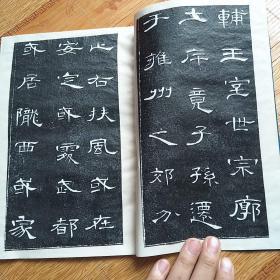 輔王室世宗廓
土斥竟子孫遷
于雍州之郊分
止右扶風或在
安定或處武都
或居隴西或家